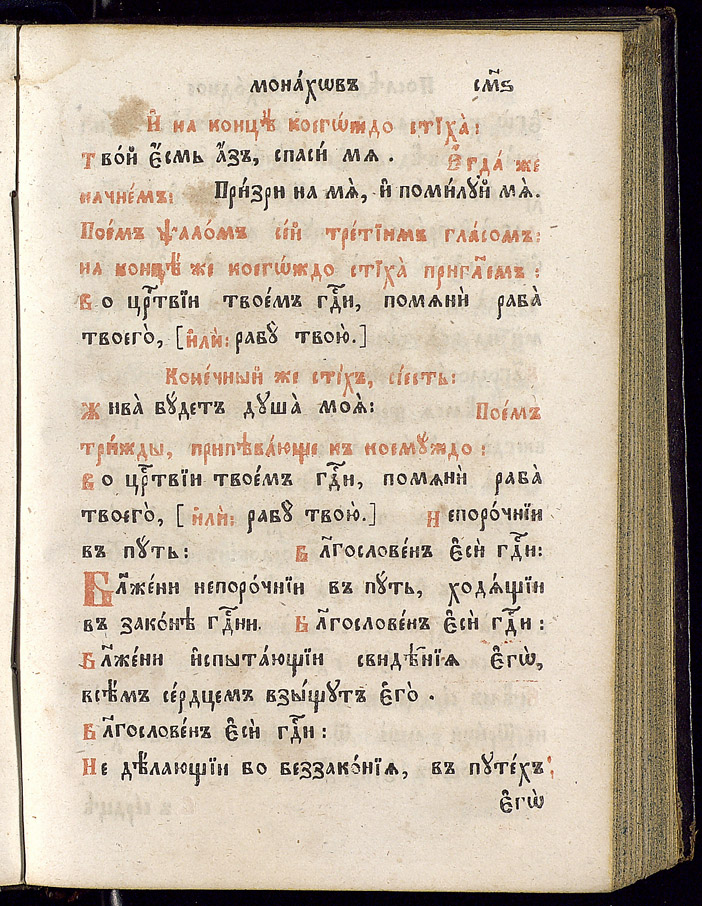 мона́хѡвъ см҃ѕ
И҆ на конц҄ѣ коегѡ́ждо стїха̀:
Тво́й є҆́смь а҆́зъ, спаси́ мѧ. Е҆гда́ же
начне́мъ: При́зри на мѧ̀, и҆ поми́лꙋй мѧ.
Пое́мъ ѱало́мъ се́й тре́тїимъ гла́сомъ:
на конц҄ѣ же коегѡ́ждо стїха̀ приглⷶ҇емъ:
Во црⷭ҇твїи твое́мъ гдⷭ҇и, помѧнѝ раба̀
твоегѡ̀, [и҆лѝ: рабꙋ̀ твою̀.]
Коне́чный же стїхъ, сїе́сть:
Жива̀ бꙋ́детъ дꙋша̀ моѧ̀: Пое́мъ
три́жды, припѣва́юще къ коемꙋ́ждо:
Во црⷭ҇твїи твое́мъ гдⷭ҇и, помѧнѝ раба̀
твоегѡ̀, [и҆лѝ: рабꙋ̀ твою̀.] Непоро́чнїи
въ пꙋ́ть: Блⷢ҇ослове́нъ є҆сѝ гдⷭ҇и:
Блⷤ҇ени непоро́чнїи въ пꙋ́ть, ходѧ́щїи
въ зако́нѣ гдⷭ҇ни. Блⷢ҇ослове́нъ є҆сѝ гдⷭ҇и:
Блⷤ҇ени и҆спыта́ющїи свидѣ́нїѧ є҆гѡ̀,
всѣ́мъ се́рдцемъ взы́щꙋтъ є҆го̀.
Блⷢ҇ослове́нъ є҆сѝ гдⷭ҇и:
Не дѣ́лающїи бо беззако́нїѧ, въ пꙋте́хъ
є҆гѡ̀